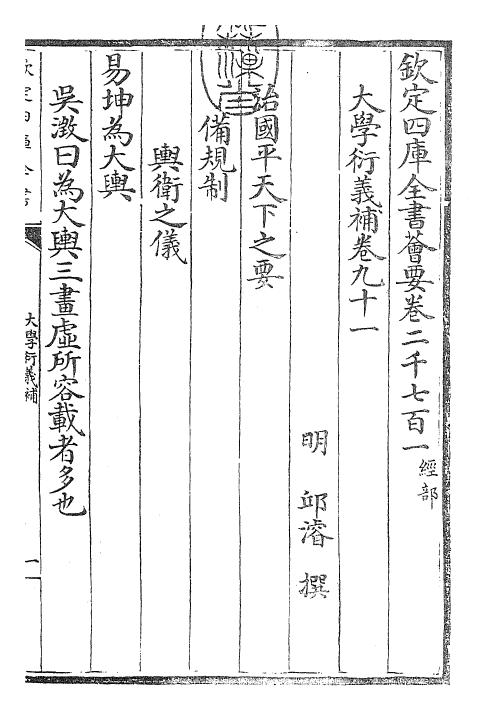 欽定四庫全書薈要卷二千七百一經部
大學衍義補卷九十一
明 邱濬 撰
治國平天下之要
備規制
輿衛之儀
易坤為大輿
吳澂曰為大輿三畫虛所容載者多也
大學衍義補
一